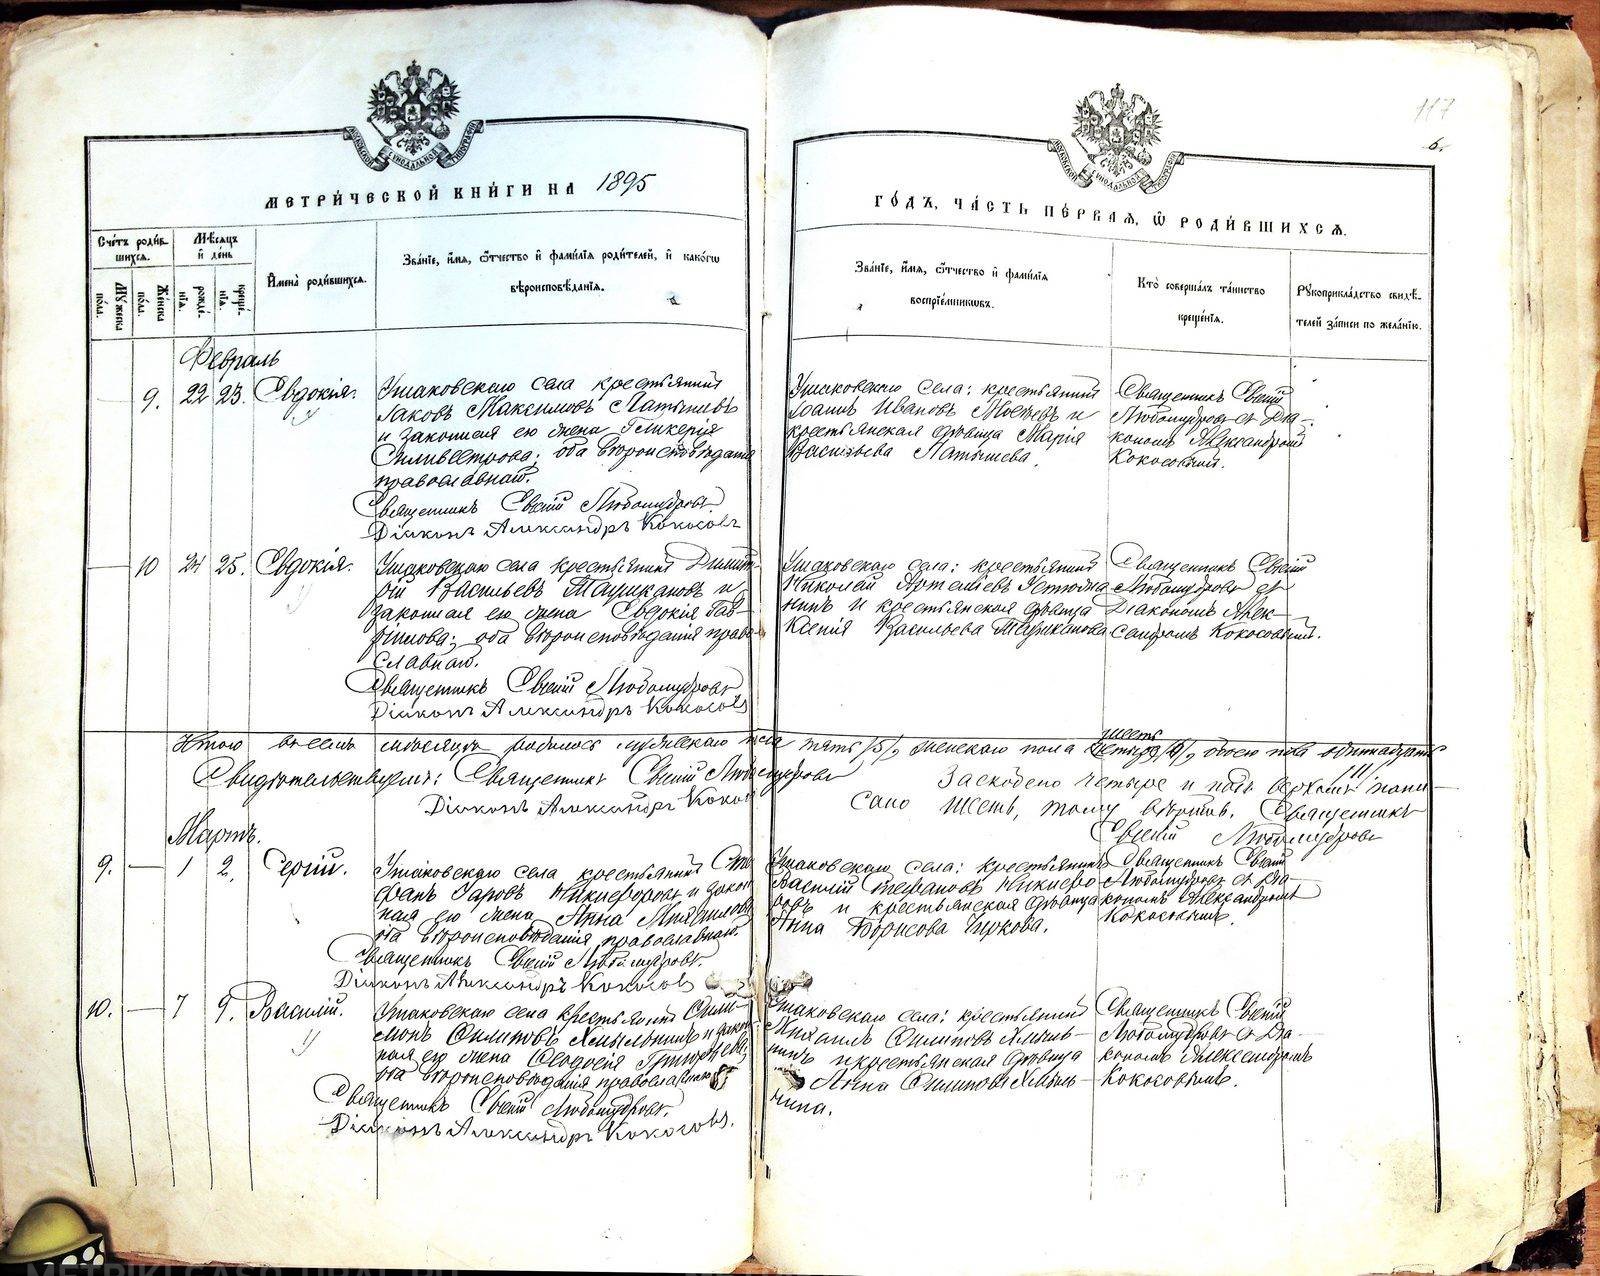 117
6.
МОСКОВСКОЙ СѴНОДАЛЬНОЙ ТИПОГРАФІИ
МОСКОВСКОЙ СѴНОДАЛЬНОЙ ТИПОГРАФІИ
МЕТРИ́ЧЕСКОЙ КНИ́ГИ НА 1895
ГО́ДЪ, ЧА́СТЬ ПЕ́РВАЯ, Ѡ РОДИ́ВШИХСЯ.
Сче́тъ роди́в-
шихся.
Мѣ́сяцъ
и҆ де́нь
Му́жеска
по́ла.
Же́нска
по́ла.
рожде́-
нія.
креще́-
нія.
И҆мена̀ роди́вшихся.
Зва́ніе, и҆́мя, ѻ҆́тчество и҆ фами́лія роди́телей, и҆ како́гѡ
вѣроисповѣ́данія.
Зва́ніе, и҆́мя, ѻ҆́тчество и҆ фами́лія
воспріе́мникѡвъ.
Кто̀ соверша́лъ та́инство
креще́нія.
Рꙋкоприкла́дство свидѣ́-
телей за́писи по жела́нію.
Февраль
9. 22 23. Евдокія.
Ушаковскаго села крестьянинъ
Іаковъ Максимовъ Латышевъ
и законная его жена Гликерія
Силивестрова; оба вѣроисповѣданія
православнаго.
Священникъ Евгеній Любомудровъ.
Діаконъ Александръ Кокосовъ
Ушаковскаго села: крестьянинъ
Іоаннъ Ивановъ и
крестьянская дѣвица Марія
Васильева Латышева.
Священникъ Евгеній
Любомудровъ съ Діа-
кономъ Александромъ
Кокосовымъ.
10 24 25. Евдокія.
Ушаковскаго села крестьянинъ Димит-
рій Васильевъ Ташкановъ и
законная его жена Евдокія
оба вѣроисповѣданія право-
славнаго.
Священникъ Евгеній Любомудровъ
Діаконъ Александръ Кокосовъ
Ушаковскаго села: крестьянинъ
Николай Артемьевъ Устюжа-
нинъ и крестьянская дѣвица
Ксенія Васильева Ташканова
Священникъ Евгеній
Любомудровъ съ
Діакономъ Алек-
сандромъ Кокосовымъ.
шесть
Итого въ семъ мѣсяцѣ родилось мужескаго пола пять /5/, женскаго пола четыре /6/, обоего пола одиннадцать
/11/
Свидѣтельствуемъ: Священникъ Евгеній Любомудровъ
Діаконъ Александръ Кокосовъ
Заскоблено четыре и надъ верхомъ напи-
сано шесть, тому вѣрить. Священникъ
Евгеній Любомудровъ
Мартъ.
9. 1 2. Сергій.
Ушаковскаго села крестьянинъ Сте-
фанъ Никифоровъ и закон-
ная его жена Анна Михаилова
оба вѣроисповѣданія православнаго.
Священникъ Евгеній Любомудровъ.
Діаконъ Александръ Кокосовъ
Ушаковскаго села: крестьянинъ
Василій Стефановъ Никифо-
ровъ и крестьянская дѣвица
Анна Борисова Чиркова.
Священникъ Евгеній
Любомудровъ съ Діа-
кономъ Александромъ
Кокосовымъ.
10. 7 9. Василій.
Ушаковскаго села крестьянинъ Филим-
монъ Филиповъ Хмылнинъ и закон-
ная его жена Ѳеодосія Григорьева,
оба вѣроисповѣданія православнаго
Священникъ Евгеній Любомудровъ.
Діаконъ Александръ Кокосовъ.
Ушаковскаго села: крестьянинъ
Михаилъ Филиповъ Хмылн-
нинъ и крестьянская дѣвица
Анна Филипова Хмыль-
нина.
Священникъ Евгеній
Любомудровъ съ Діа-
кономъ Александромъ
Кокосовымъ.